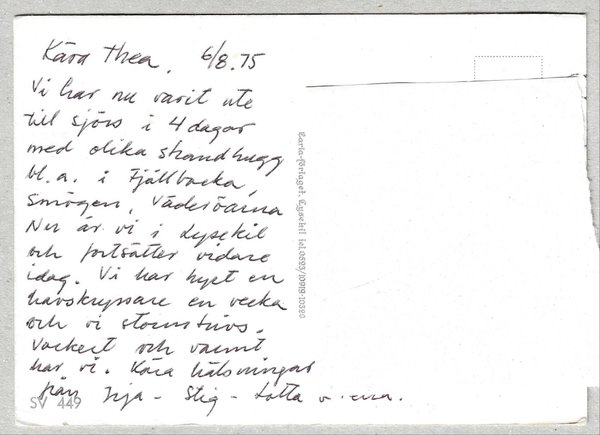 Kära Thea, 6/8.75
Vi har nu varit ute
till sjöss i 4 dagar
med olika strandhugg
bl.a. i Fjällbacka,
Smögen, Väderöarna
Nu är vi i Lysekil
och fortsätter vidare
idag. Vi har hyrt en
havskryssare en vecka
och vi stormtrivs.
Vackert och varmt
har vi. Kära hälsningar
från - Stig - Lotta
SV 449
Carla-förlaget, Lysekil tel. 0523/10919-10320